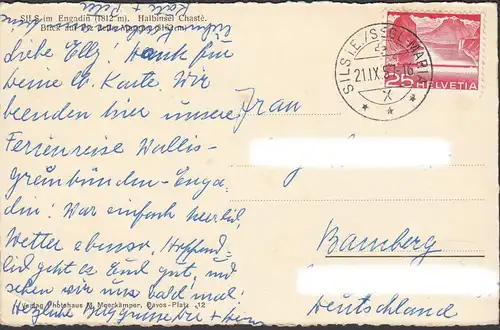 SILS im Engadin (1812 m), Halbinsel Chasté.
Blick auf
Liebe Elly! Dank für
deine lb. Karte. Wir
beenden hier unsere
Ferienreise Wallis-
graubünden-Enga-
din! War einfach herrlich,
Wetter ebenso. Hoffend-
lich geht es Euch gut, und
sehen wir uns bald mal!
Herzliche Berggrüsse
Verlag Photohaus M. Meerkämper, Davos-Platz. 12
SILS I.E./SEGL MARIA
21.IX.
25 HELVETIA
Frau
Bamberg
Deutschland